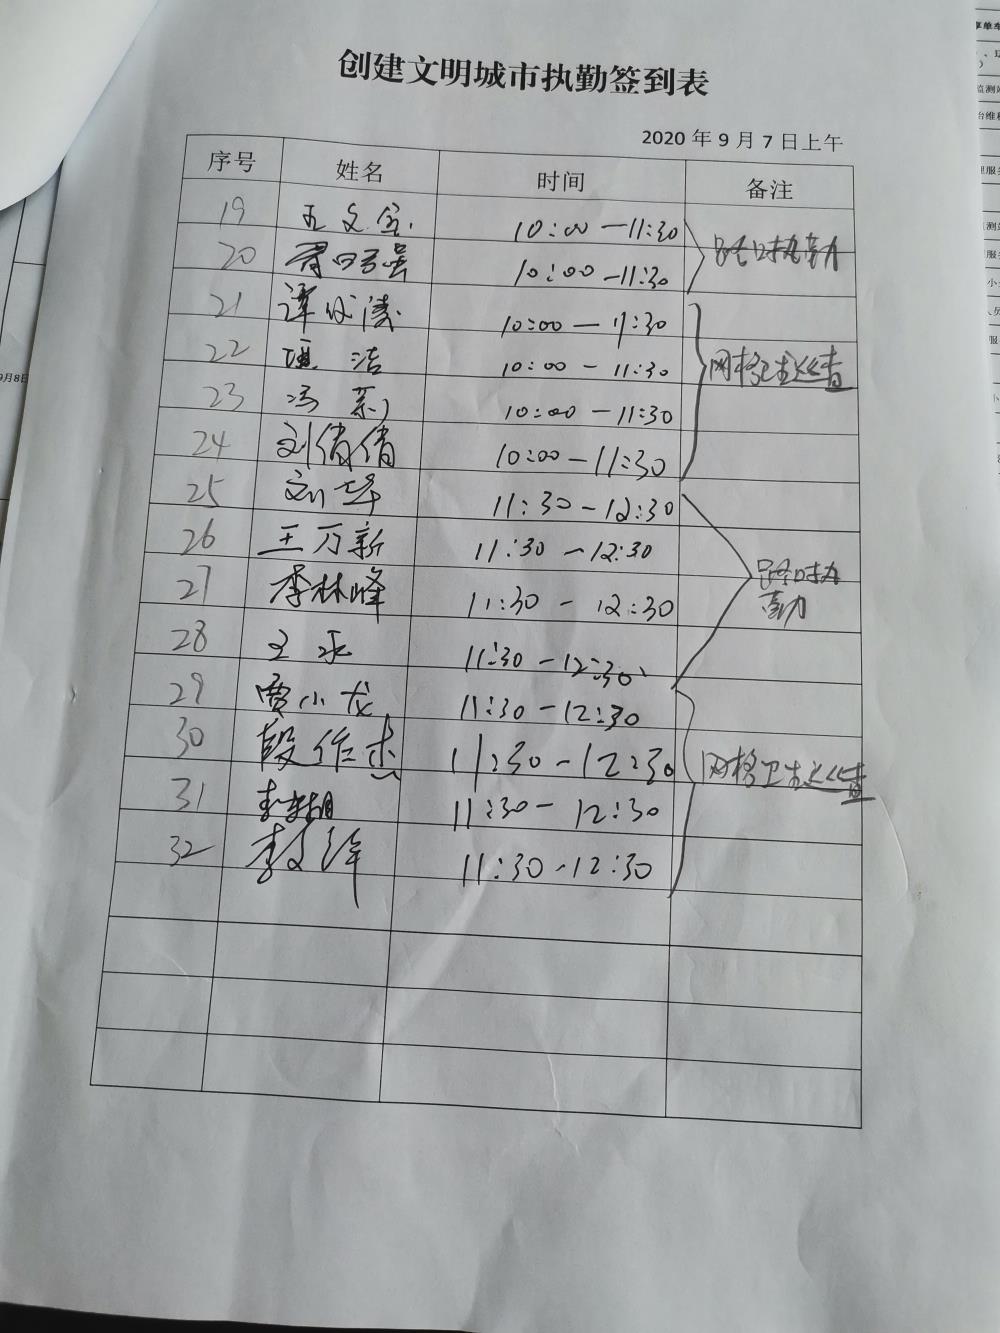 创建文明城市执勤签到表
2020 年 9 月 7 日上午
序号 姓名 时间 备注
19 王文宝 10:00—11:30 路口执勤
20 10:00—11:30
21 10:00—11:30
22 洁 10:00—11:30 网格卫生巡查
23 冯 10:00—11:30
24 刘倩倩 10:00—11:30
25 刘华 11:30-12:30
26 王万新 11:30-12:30 路口执勤
27 李林峰 11:30-12:30
28 王永 11:30-12:30
29 贾小龙 11:30-12:30
30 段作杰 11:30-12:30 网格卫生巡查
31 11:30-12:30
32 李文 11:30-12:30
9月8日